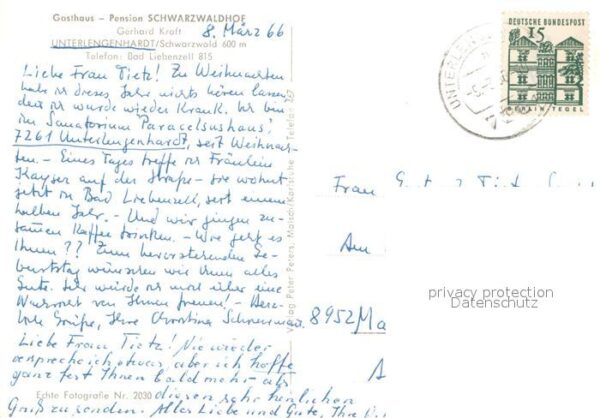 Gasthaus – Pension SCHWARZWALDHOF
Gerhard Kraft
8. März 66
UNTERLENGENHARDT/Schwarzwald 600 m
Telefon: Bad Liebenzell 815
Liebe Frau Tietz! Zu Weihnachten
habe ich dieses Jahr nichts hören lassen,
denn ich wurde wieder krank. Ich bin
im Sanatorium Paracelsushaus,
7261 Unterlengenhardt, seit Weihnach-
ten. – Eines Tages treffe ich Fräulein
Kayser auf der Straße – sie wohnt
jetzt in Bad Liebenzell, seit einem
halben Jahr. – Und wir gingen zu-
sammen Kaffee trinken. – Wie geht es
Ihnen?? Zum bevorstehenden Ge-
burtstag wünschen wir Ihnen alles
Gute. Ich würde mich über eine
Antwort von Ihnen freuen! – Herz-
liche Grüße, Ihre Christina
Liebe Frau Tietz! Nie wieder
verspreche ich etwas, aber ich hoffe
ganz fest Ihnen bald mehr als
Echte Fotografie Nr. 2030 diesen sehr herzlichen
Gruß zu senden. Alles Liebe und Gute, Ihre
Verlag Peter Peters, Malsch/Karlsruhe
DEUTSCHE BUNDESPOST
15
BERLIN-TEGEL
UNTERLEN
Frau
Am
8952 Ma
privacy protection
Datenschutz